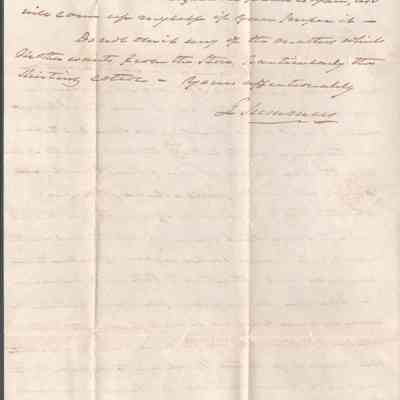 will come up myself if you prefer it –
Do not omit any of the matters which
Mother wants from the Store, particularly the
Shirting cotton – Yours affectionately
L Summers